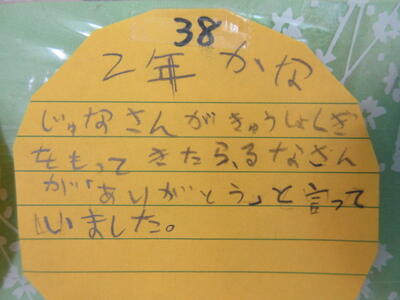 38
2年 かな
じゅなさんがきゅうしょくぎ
をもってきたら、るなさん
が「ありがとう」と言って
いました。